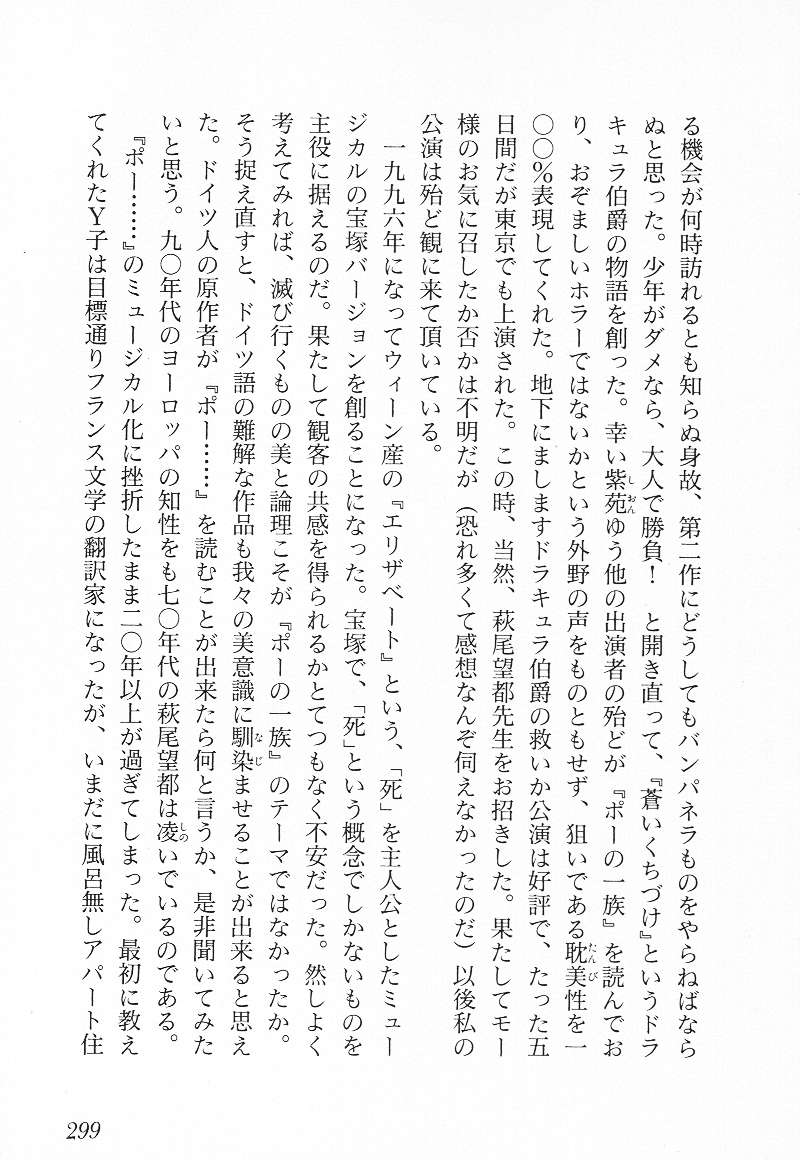 る機会が何時訪れるとも知らぬ身故、第二作にどうしてもバンパネラものをやらねばなら
ぬと思った。少年がダメなら、大人で勝負！　と開き直って、『蒼いくちづけ』というドラ
キュラ伯爵の物語を創った。幸い紫苑ゆう他の出演者の殆どが『ポーの一族』を読んでお
り、おぞましいホラーではないかという外野の声をものともせず、狙いである耽美性を一
〇〇％表現してくれた。地下にましますドラキュラ伯爵の救いか公演は好評で、たった五
日間だが東京でも上演された。この時、当然、萩尾望都先生をお招きした。果たしてモー
様のお気に召したか否かは不明だが（恐れ多くて感想なんぞ伺えなかったのだ）以後私の
公演は殆ど観に来て頂いている。
　一九九六年になってウィーン産の『エリザベート』という、「死」を主人公としたミュー
ジカルの宝塚バージョンを創ることになった。宝塚で、「死」という概念でしかないものを
主役に据えるのだ。果たして観客の共感を得られるかとてつもなく不安だった。然しよく
考えてみれば、滅び行くものの美と論理こそが『ポーの一族』のテーマではなかったか。
そう捉え直すと、ドイツ語の難解な作品も我々の美意識に馴染ませることが出来ると思え
た。ドイツ人の原作者が『ポー……』を読むことが出来たら何と言うか、是非聞いてみた
いと思う。九〇年代のヨーロッパの知性をも七〇年代の萩尾望都は凌いでいるのである。
　『ポー……』のミュージカル化に挫折したまま二〇年以上が過ぎてしまった。最初に教え
てくれたＹ子は目標通りフランス文学の翻訳家になったが、いまだに風呂無しアパート住
しおん
たんび
なじ
しの
299